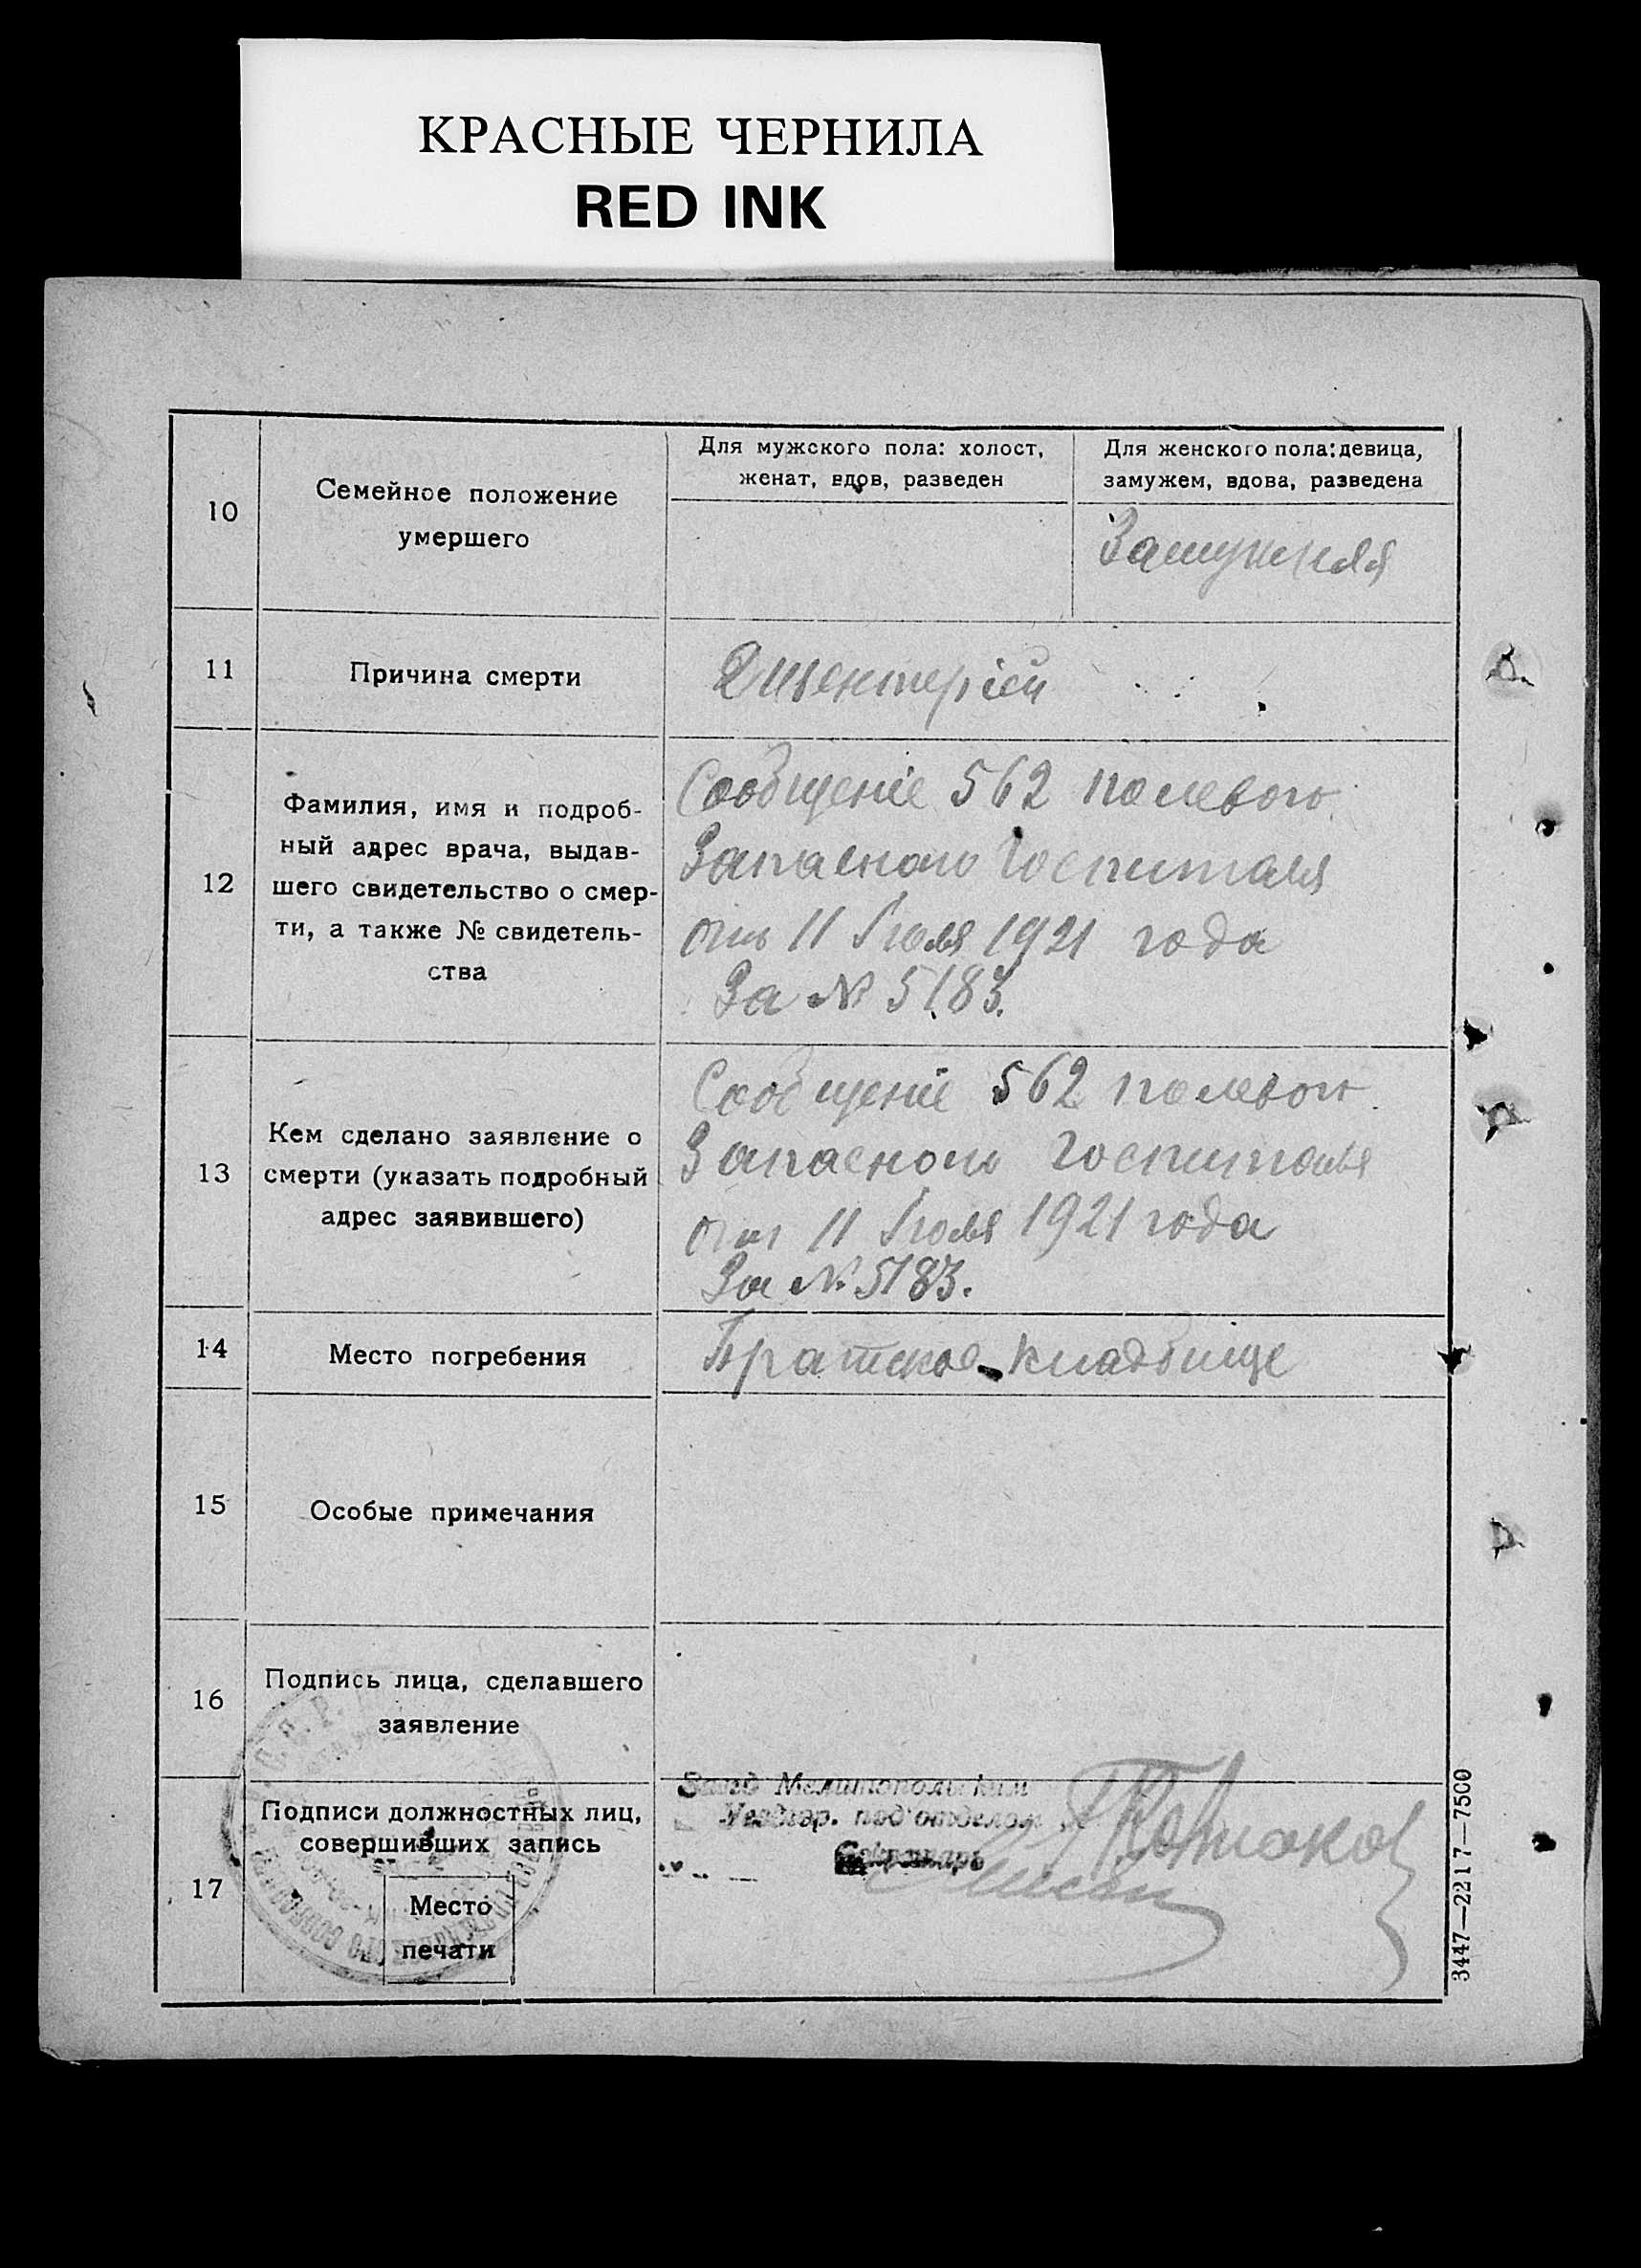 КРАСНЫЕ ЧЕРНИЛА
RED INK
10
Семейное положение
умершего
Для мужского пола: холост,
женат, вдов, разведен
Для женского пола: девица,
замужем, вдова, разведена
Замужняя
11
Причина смерти
Дизентерiей
12
Фамилия, имя и подроб-
ный адрес врача, выдав-
шего свидетельство о смер-
ти, а также № свидетель-
ства
Сообщенiе 562 полевого
Запасного Госпиталя
отъ 11 Iюля 1921 года
За № 5183.
13
Кем сделано заявление о
смерти (указать подробный
адрес заявившего)
Сообщенiе 562 полевого
Запасного Госпиталя
отъ 11 Iюля 1921 года
За № 5183.
14
Место погребения
Братское кладбище
15
Особые примечания
16
Подпись лица, сделавшего
заявление
17
Подписи должностных лиц,
совершивших запись
Место
печати
Завед Мелитопольским
под'отделом
Секретарь
3447—2217—7500